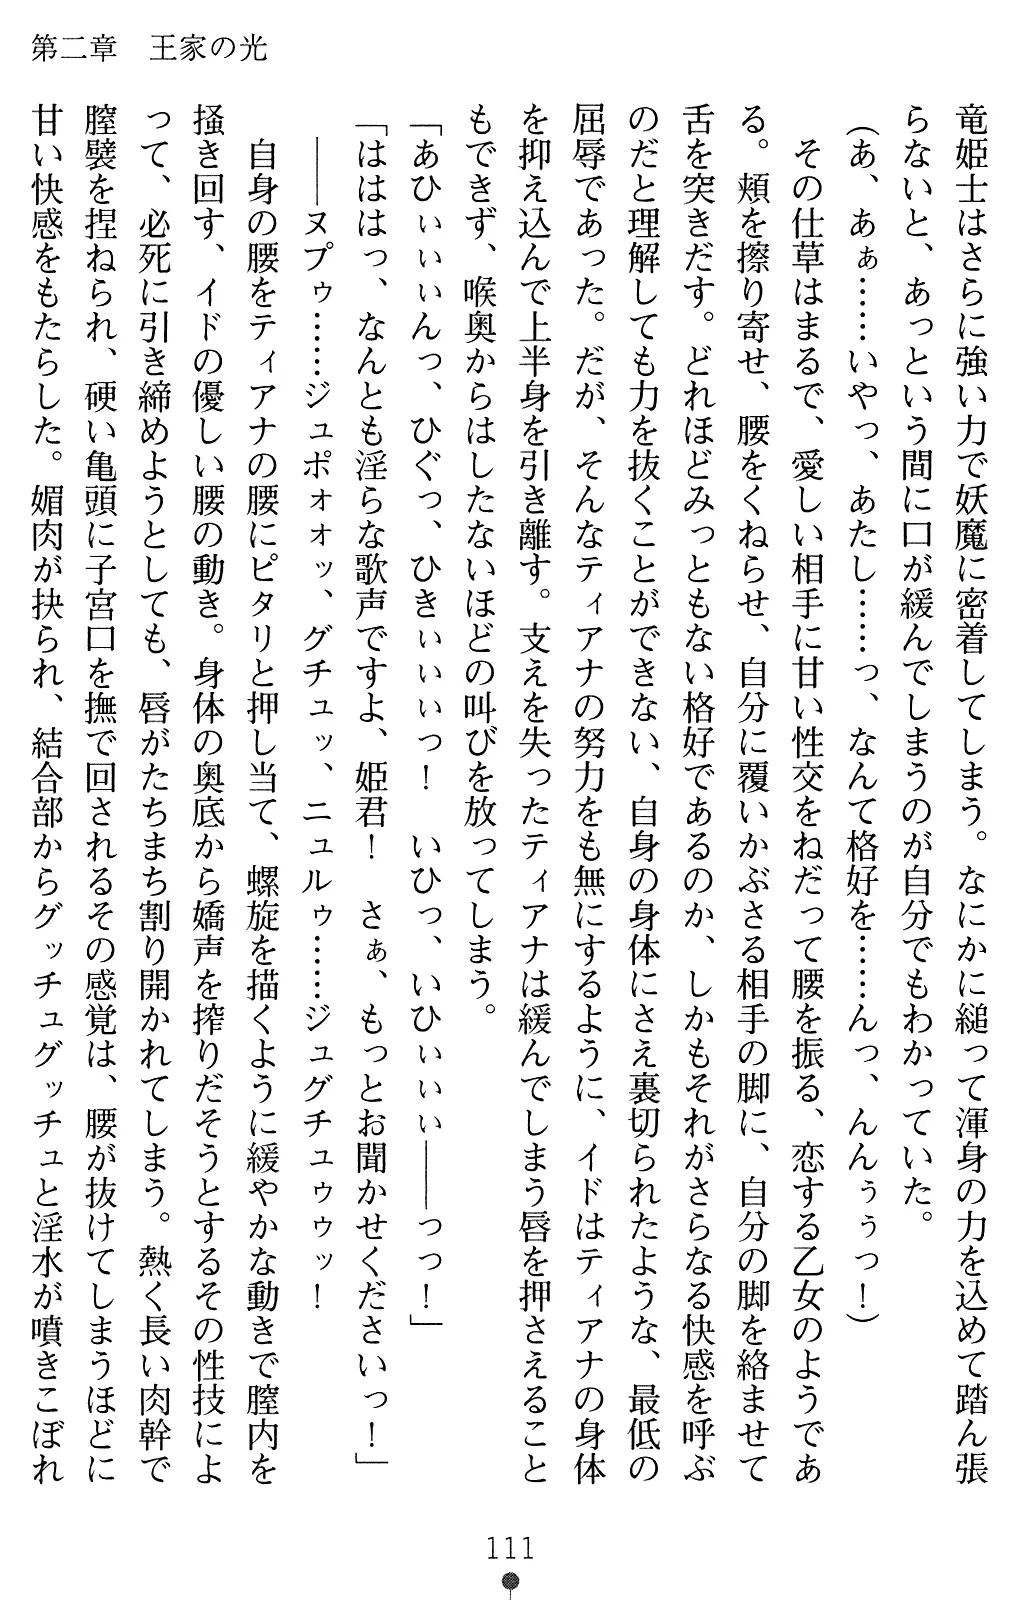 第二章　王家の光
竜姫士はさらに強い力で妖魔に密着してしまう。なにかに縋って渾身の力を込めて踏ん張
らないと、あっという間に口が緩んでしまうのが自分でもわかっていた。
（あ、あぁ……いやっ、あたし……っ、なんて格好を……んっ、んんぅぅっ！）
　その仕草はまるで、愛しい相手に甘い性交をねだって腰を振る、恋する乙女のようであ
る。頬を擦り寄せ、腰をくねらせ、自分に覆いかぶさる相手の脚に、自分の脚を絡ませて
舌を突きだす。どれほどみっともない格好であるのか、しかもそれがさらなる快感を呼ぶ
のだと理解しても力を抜くことができない、自身の身体にさえ裏切られたような、最低の
屈辱であった。だが、そんなティアナの努力をも無にするように、イドはティアナの身体
を抑え込んで上半身を引き離す。支えを失ったティアナは緩んでしまう唇を押さえること
もできず、喉奥からはしたないほどの叫びを放ってしまう。
「あひぃぃぃんっ、ひぐっ、ひきぃぃぃっ！　いひっ、いひぃぃぃ――っっ！」
「はははっ、なんとも淫らな歌声ですよ、姫君！　さぁ、もっとお聞かせくださいっ！」
　――ヌプゥ……ジュポォォッ、グチュッ、ニュルゥ……ジュグチュゥゥッ！
　自身の腰をティアナの腰にピタリと押し当て、螺旋を描くように緩やかな動きで膣内を
掻き回す、イドの優しい腰の動き。身体の奥底から嬌声を搾りだそうとするその性技によ
って、必死に引き締めようとしても、唇がたちまち割り開かれてしまう。熱く長い肉幹で
膣襞を捏ねられ、硬い亀頭に子宮口を撫で回されるその感覚は、腰が抜けてしまうほどに
甘い快感をもたらした。媚肉が抉られ、結合部からグッチュグッチュと淫水が噴きこぼれ
111